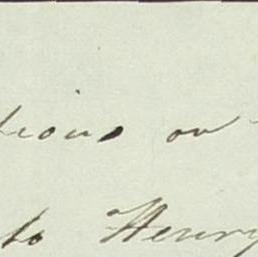 tions on
to Henry